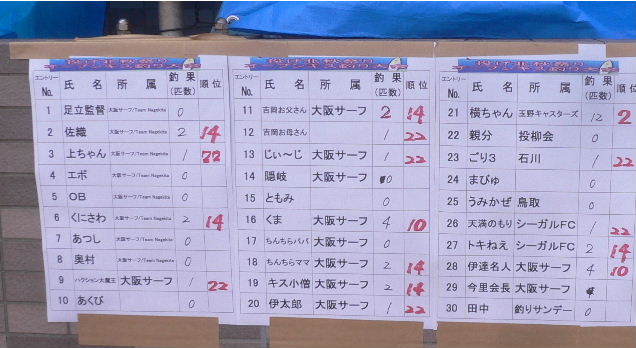 投げ北松祭り
エントリー No. 氏 名 所 属 釣 果 (匹数) 順 位
1 足立監督 大阪サーフ/Team Nagekita 0
2 佐織 大阪サーフ/Team Nagekita 2 14
3 上ちゃん 大阪サーフ/Team Nagekita 1 22
4 エボ 大阪サーフ/Team Nagekita 0
5 OB 大阪サーフ/Team Nagekita 0
6 くにさわ 大阪サーフ/Team Nagekita 2 14
7 あつし 大阪サーフ/Team Nagekita 0
8 奥村 大阪サーフ/Team Nagekita 0
9 ハクション大魔王 大阪サーフ 1 22
10 あくび 0
投げ北松祭り
エントリー No. 氏 名 所 属 釣 果 (匹数) 順 位
11 吉岡お父さん 大阪サーフ 2 14
12 吉岡お母さん 1 22
13 じぃ～じ 大阪サーフ 1 22
14 隠岐 大阪サーフ 0
15 ともみ 0
16 くま 大阪サーフ 4 10
17 ちんちらパパ 大阪サーフ 0
18 ちんちらママ 大阪サーフ 2 14
19 キス小僧 大阪サーフ 2 14
20 伊太郎 大阪サーフ 1 22
投げ北松祭り
エントリー No. 氏 名 所 属 釣 果 (匹数) 順 位
21 横ちゃん 玉野キャスターズ 12 2
22 親分 投柳会 0
23 ごり3 石川 1 22
24 まびゅ 0
25 うみかぜ 鳥取 0
26 天満のもり シーガルFC 1 22
27 トキねえ シーガルFC 2 14
28 伊達名人 大阪サーフ 4 10
29 今里会長 大阪サーフ
30 田中 釣りサンデー 0